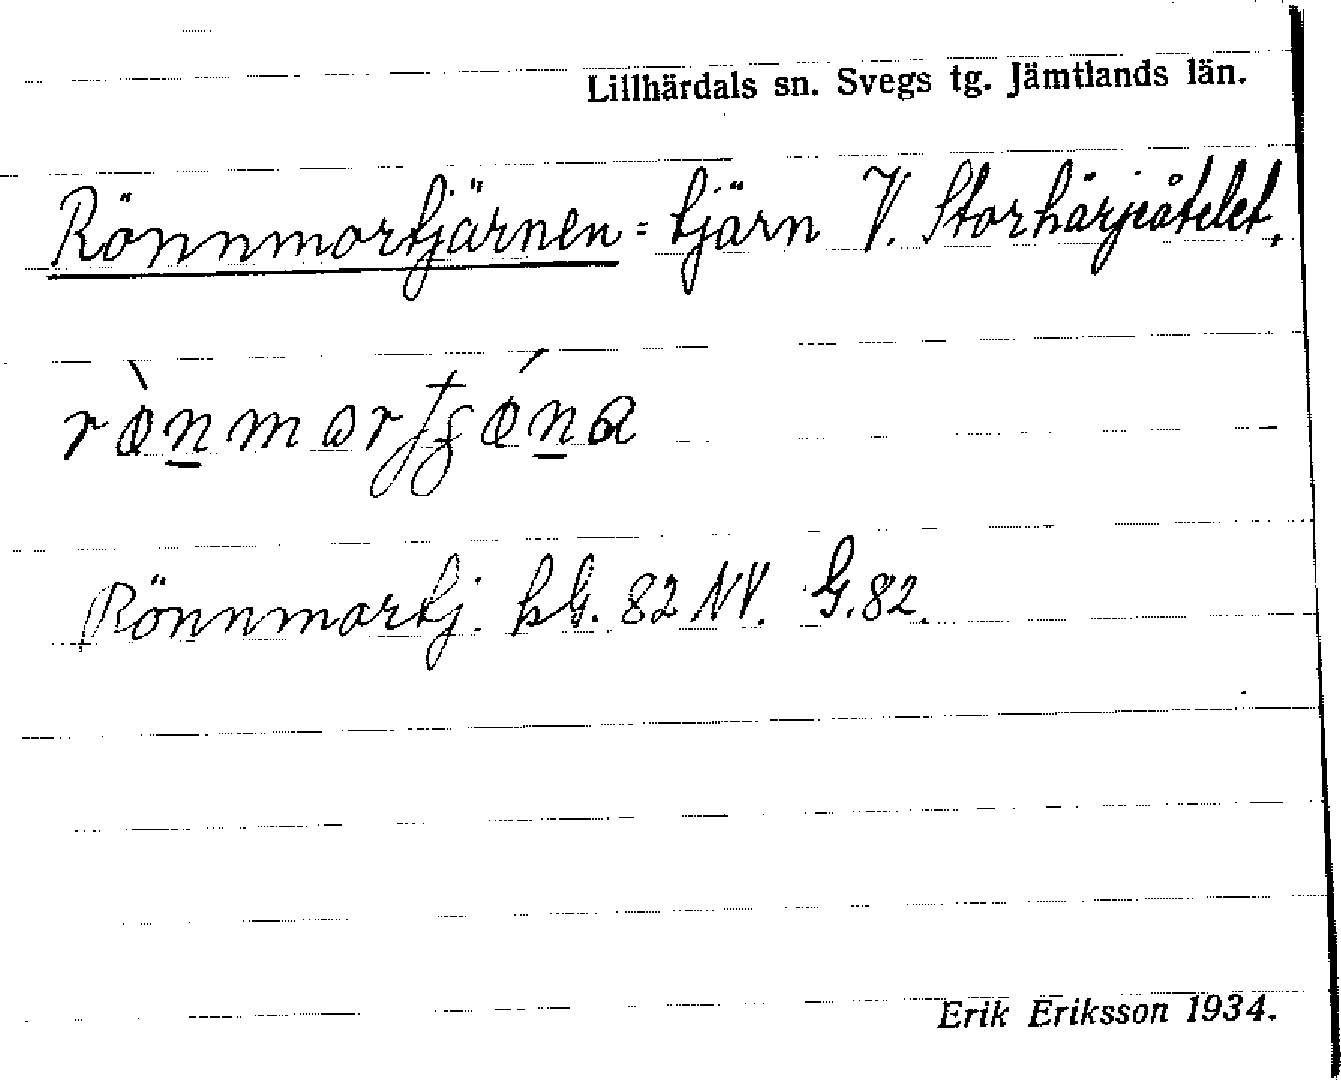 Lillhärdals sn. Svegs tg. Jämtlands län.
Rönnmortjärnen = tjärn V. Storhärjeåtelet.
Rönnmortj. kbl. 82 NV. G. 82.
Erik Eriksson 1934.